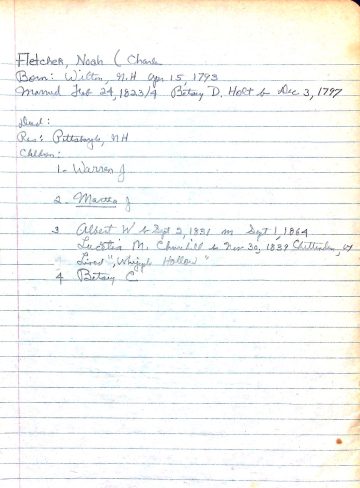 Fletcher, Noah ( Charles
Born: Wilton, N.H Apr 15, 1793
Married Feb 24, 1823/4 Betsey D. Holt b Dec 3, 1797
Died:
Res: N H
Children:
1 - Warren J
2 - Martha J
3 Albert W b Sept 2, 1831 m Sept 1, 1864
M. Churchill b Nov 30, 1839 Chittenden, Vt
Lived "Whipple Hollow"
4 Betsey C